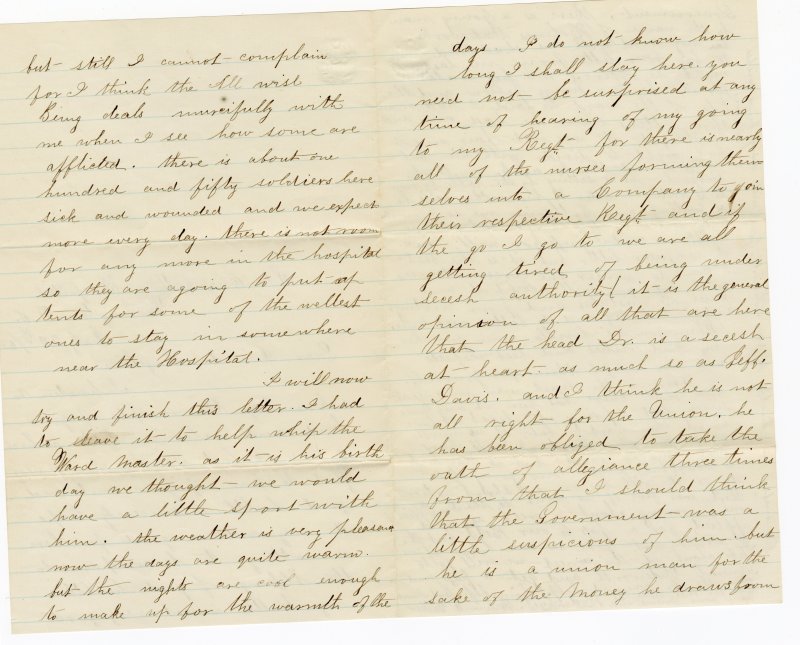 but still I cannot complain
for I think the All wise
Being deals mercifully with
me when I see how some are
afflicted. there is about one
hundred and fifty soldiers here
sick and wounded and we expect
more every day. there is not room
for any more in the hospital
so they are agoing to put up
tents for some of the wellest
ones to stay in somewhere
near the Hospital.
I will now
try and finish this letter. I had
to leave it to help whip the
Ward Master. as it is his birth
day we thought we would
have a little sport with
him. the weather is very pleasant
now the days are quite warm.
but the nights are cool enough
to make up for the warmth of the
days. I do not know how
long I shall stay here. you
need not be surprised at any
time of hearing of my going
to my Regt. for there is nearly
all of the nurses forming them-
selves into a Company to join
their respective Regt and if
the go I go to we are all
getting tired of being under
secesh authority ( it is the general
opinion of all that are here
that the head Dr. is a secesh
at heart as much so as Jeff.
Davis. and I think he is not
all right for the Union. he
has been obliged to take the
oath of allegiance three times
from that I should think
that the Government was a
little suspicious of him. but
he is a union man for the
sake of the Money he draws from